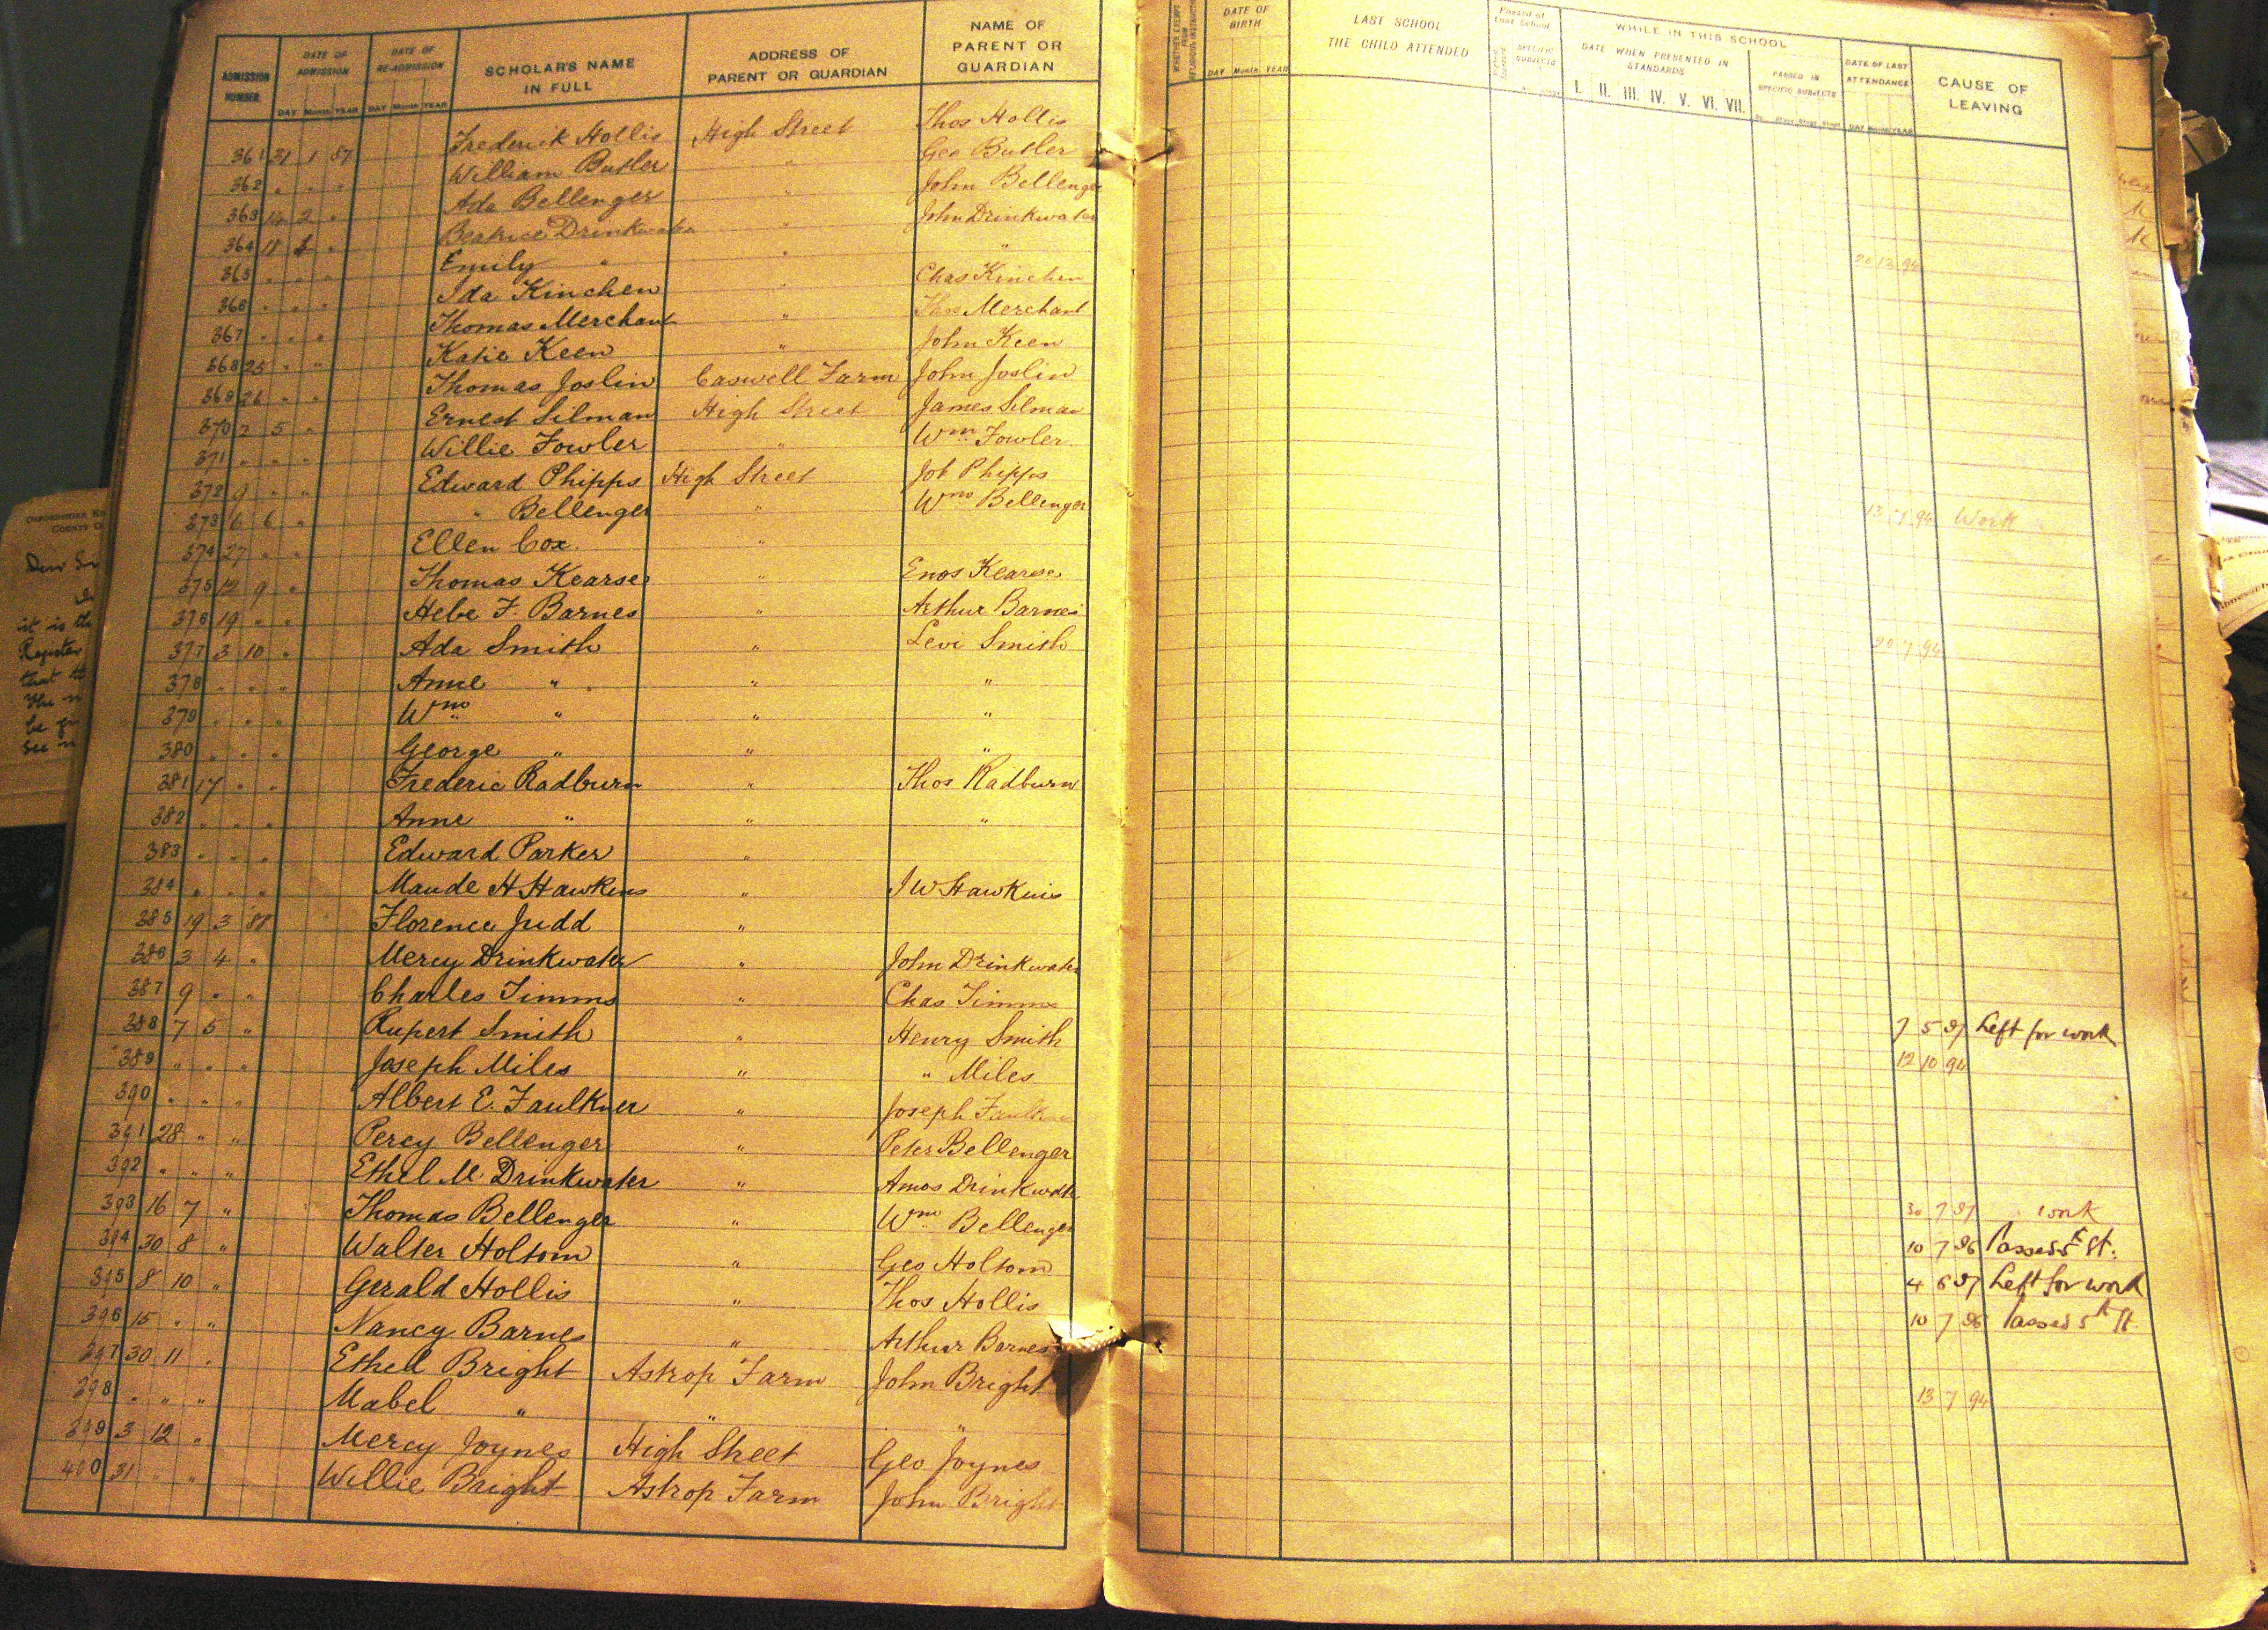 ADMISSION NUMBER. DATE OF ADMISSION DAY Month YEAR DATE OF RE-ADMISSION DAY Month YEAR SCHOLAR'S NAME IN FULL ADDRESS OF PARENT OR GUARDIAN NAME OF PARENT OR GUARDIAN
361 31 1 87 Frederick Hollis High Street Thos Hollis
362 " " " William Butler " Geo Butler
363 14 2 " Ada Bellenger " John Bellenger
364 18 " Beatrice Drinkwater " John Drinkwater
365 " " " Emily " " "
366 " " " Ida Kinchen " Chas Kinchen
367 " " " Thomas Merchant " Thos Merchant
368 25 " " Katie Keen " John Keen
369 26 " " Thomas Joslin Caswell Farm John Joslin
370 2 5 " Ernest Silman High Street James Silman
371 " " " Willie Fowler " Wm Fowler
372 9 " " Edward Phipps High Street Job Phipps
373 6 6 " " Bellenger " Wm Bellenger
374 27 " " Ellen Cox "
375 12 9 " Thomas Kearse " Enos Kearse
376 19 " " Hebe F. Barnes " Arthur Barnes
377 3 10 " Ada Smith " Levi Smith
378 " " " Anne " " "
379 " " " Wm " " "
380 " " " George " " "
381 17 " " Frederic Radburn " Thos Radburn
382 " " " Anne " " "
383 " " " Edward Parker "
384 " " " Maude H Hawkins " J W Hawkins
385 19 3 88 Florence Judd "
386 3 4 " Mercy Drinkwater " John Drinkwater
387 9 " " Charles Timms " Chas Timms
388 7 5 " Rupert Smith " Henry Smith
389 " " " Joseph Miles " " Miles
390 " " " Albert E. Faulkner " Joseph
391 28 " " Percy Bellenger " Peter Bellenger
392 " " " Ethel M. Drinkwater " Amos Drinkwater
393 16 7 " Thomas Bellenger " Wm Bellenger
394 30 8 " Walter Holtom " Geo Holtom
395 8 10 " Gerald Hollis " Thos Hollis
396 15 " " Nancy Barnes " Arthur Barnes
397 30 11 " Ethel Bright Astrop Farm John Bright
398 " " " Mabel " " "
399 3 12 " Mercy Joynes High Street Geo Joynes
400 31 " " Willie Bright Astrop Farm John Bright
DATE OF BIRTH DAY Month YEAR LAST SCHOOL THE CHILD ATTENDED Passed at Last School SPECIFIC SUBJECTS WHILE IN THIS SCHOOL DATE WHEN PRESENTED IN STANDARDS I. II. III. IV. V. VI. VII. PASSED IN SPECIFIC SUBJECTS DATE OF LAST ATTENDANCE CAUSE OF LEAVING
20 12 94
13 7 94 Work
20 7 94
7 5 97 Left for work
12 10 94
30 7 97 work
10 7 96 Passed 5th St.
4 6 97 Left for work
10 7 96 Passed 5th St.
13 7 94
Dear Sir
it is the
Register
that th
be
see